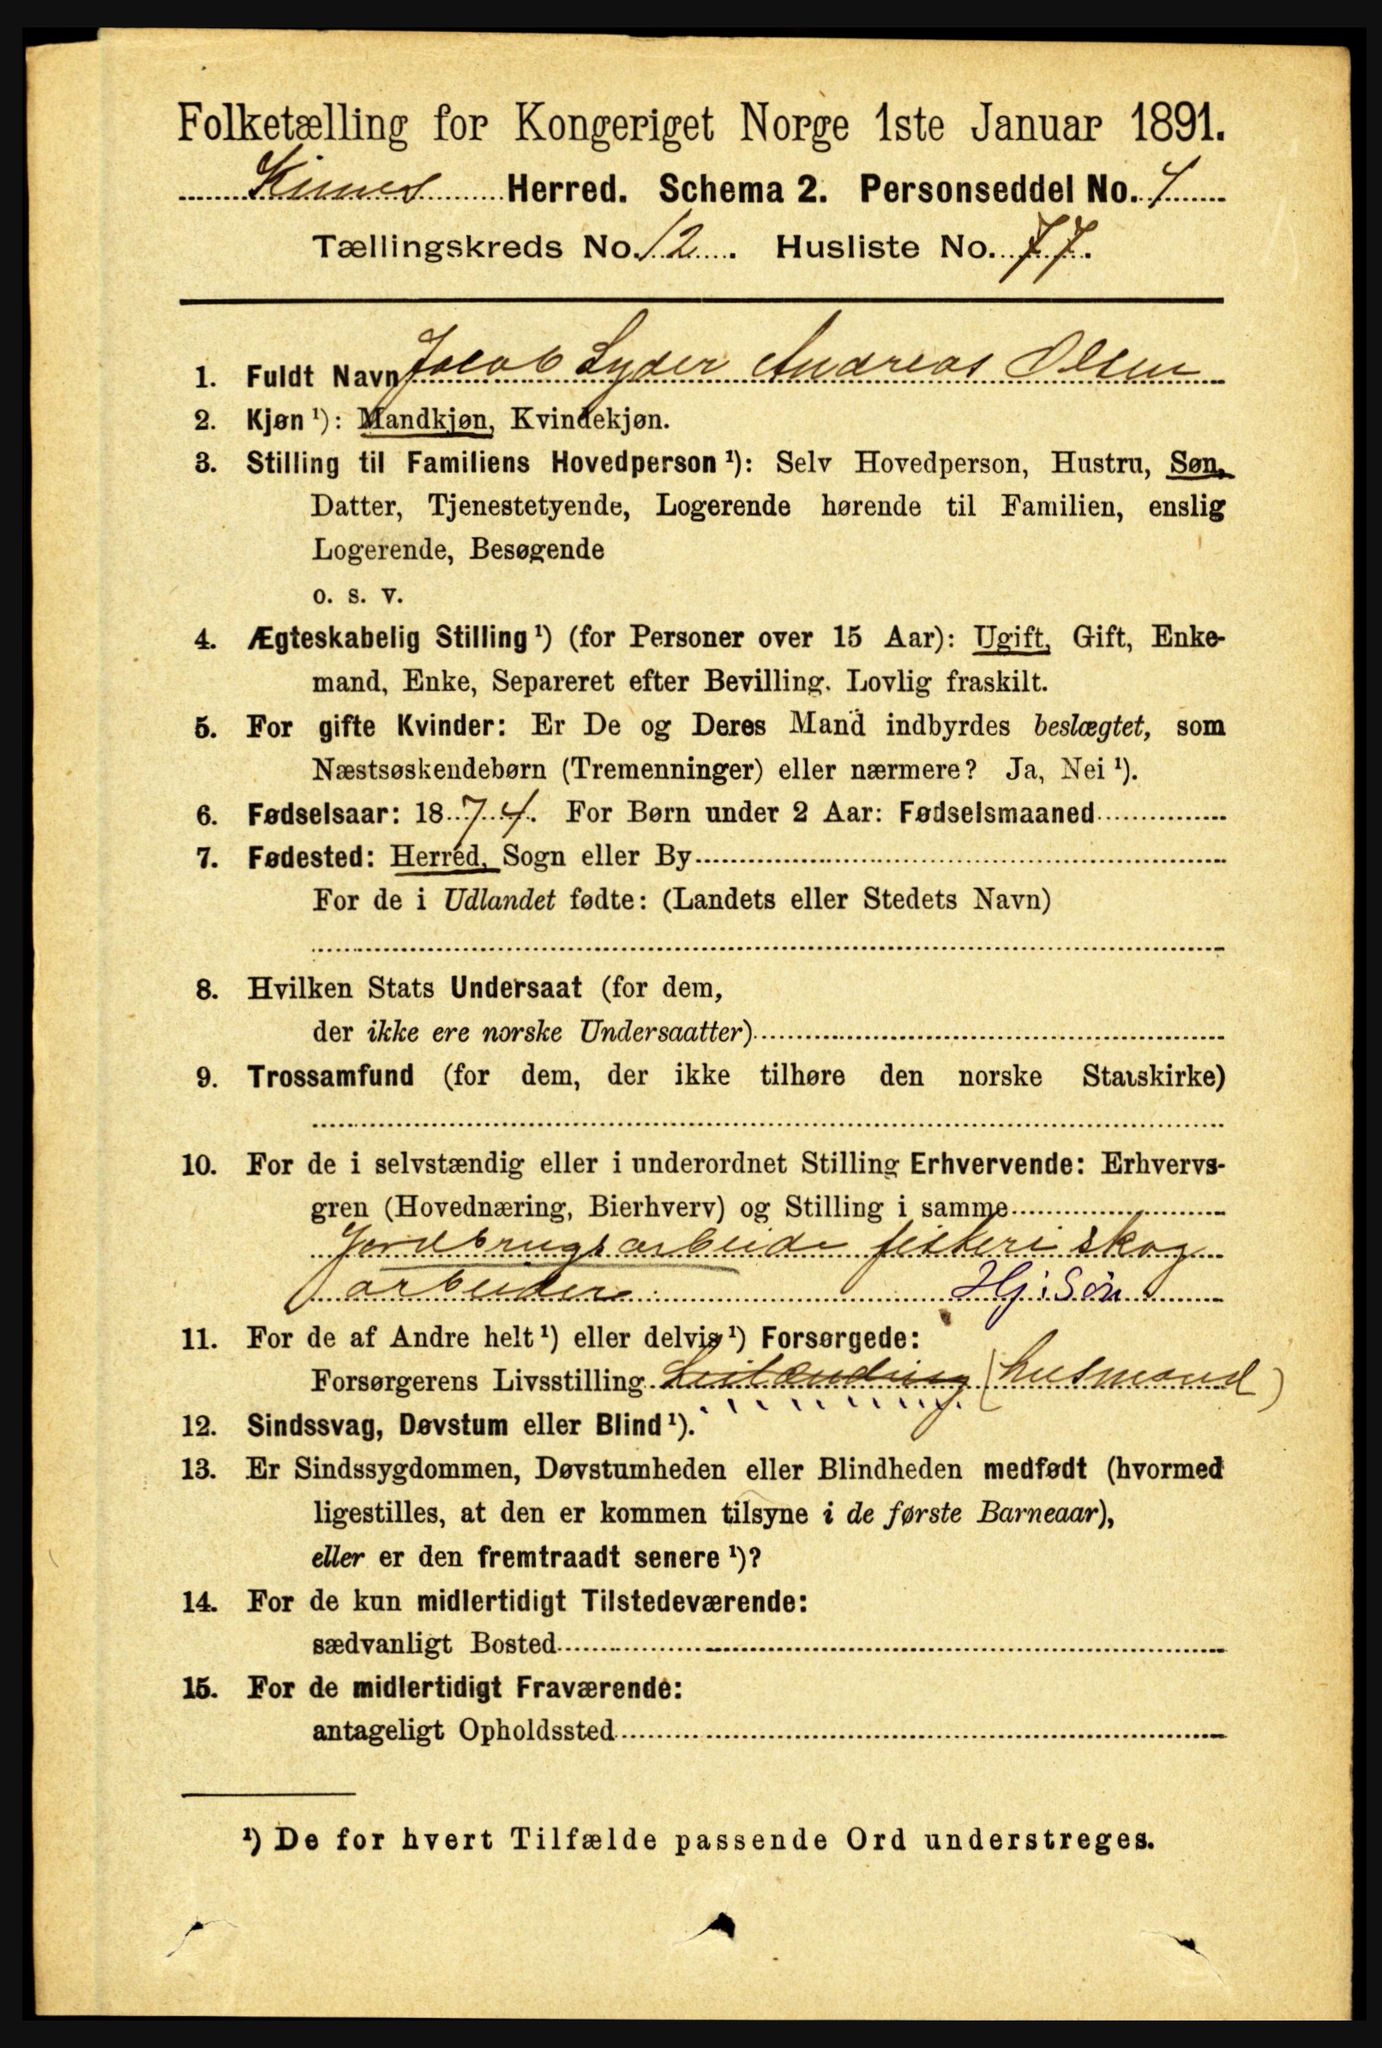 Folketælling for Kongeriget Norge 1ste Januar 1891.
Kinns Herred. Schema 2. Personseddel No. 7
Tællingskreds No. 12. Husliste No. 77.
1. Fuldt Navn Jacob Lyder Andreas Olsen
2. Kjøn¹): Mandkjøn, Kvindekjøn.
3. Stilling til Familiens Hovedperson¹): Selv Hovedperson, Hustru, Søn,
Datter, Tjenestetyende, Logerende hørende til Familien, enslig
Logerende, Besøgende
o. s. v.
4. Ægteskabelig Stilling¹) (for Personer over 15 Aar): Ugift, Gift, Enke-
mand, Enke, Separeret efter Bevilling. Lovlig fraskilt.
5. For gifte Kvinder: Er De og Deres Mand indbyrdes beslægtet, som
Næstsøskendebørn (Tremenninger) eller nærmere? Ja, Nei¹).
6. Fødselsaar: 1874. For Børn under 2 Aar: Fødselsmaaned
7. Fødested: Herred, Sogn eller By
For de i Udlandet fødte: (Landets eller Stedets Navn)
8. Hvilken Stats Undersaat (for dem,
der ikke ere norske Undersaatter)
9. Trossamfund (for dem, der ikke tilhøre den norske Statskirke)
10. For de i selvstændig eller i underordnet Stilling Erhvervende: Erhvervs-
gren (Hovednæring, Bierhverv) og Stilling i samme
Jordbrugsarbeide fiskeri skog
arbeider Hj: Søn
11. For de af Andre helt¹) eller delvis¹) Forsørgede:
Forsørgerens Livsstilling Leilænding (husmand)
12. Sindssvag, Døvstum eller Blind¹).
13. Er Sindssygdommen, Døvstumheden eller Blindheden medfødt (hvormed
ligestilles, at den er kommen tilsyne i de første Barneaar),
eller er den fremtraadt senere¹)?
14. For de kun midlertidigt Tilstedeværende:
sædvanligt Bosted
15. For de midlertidigt Fraværende:
antageligt Opholdssted
¹) De for hvert Tilfælde passende Ord understreges.